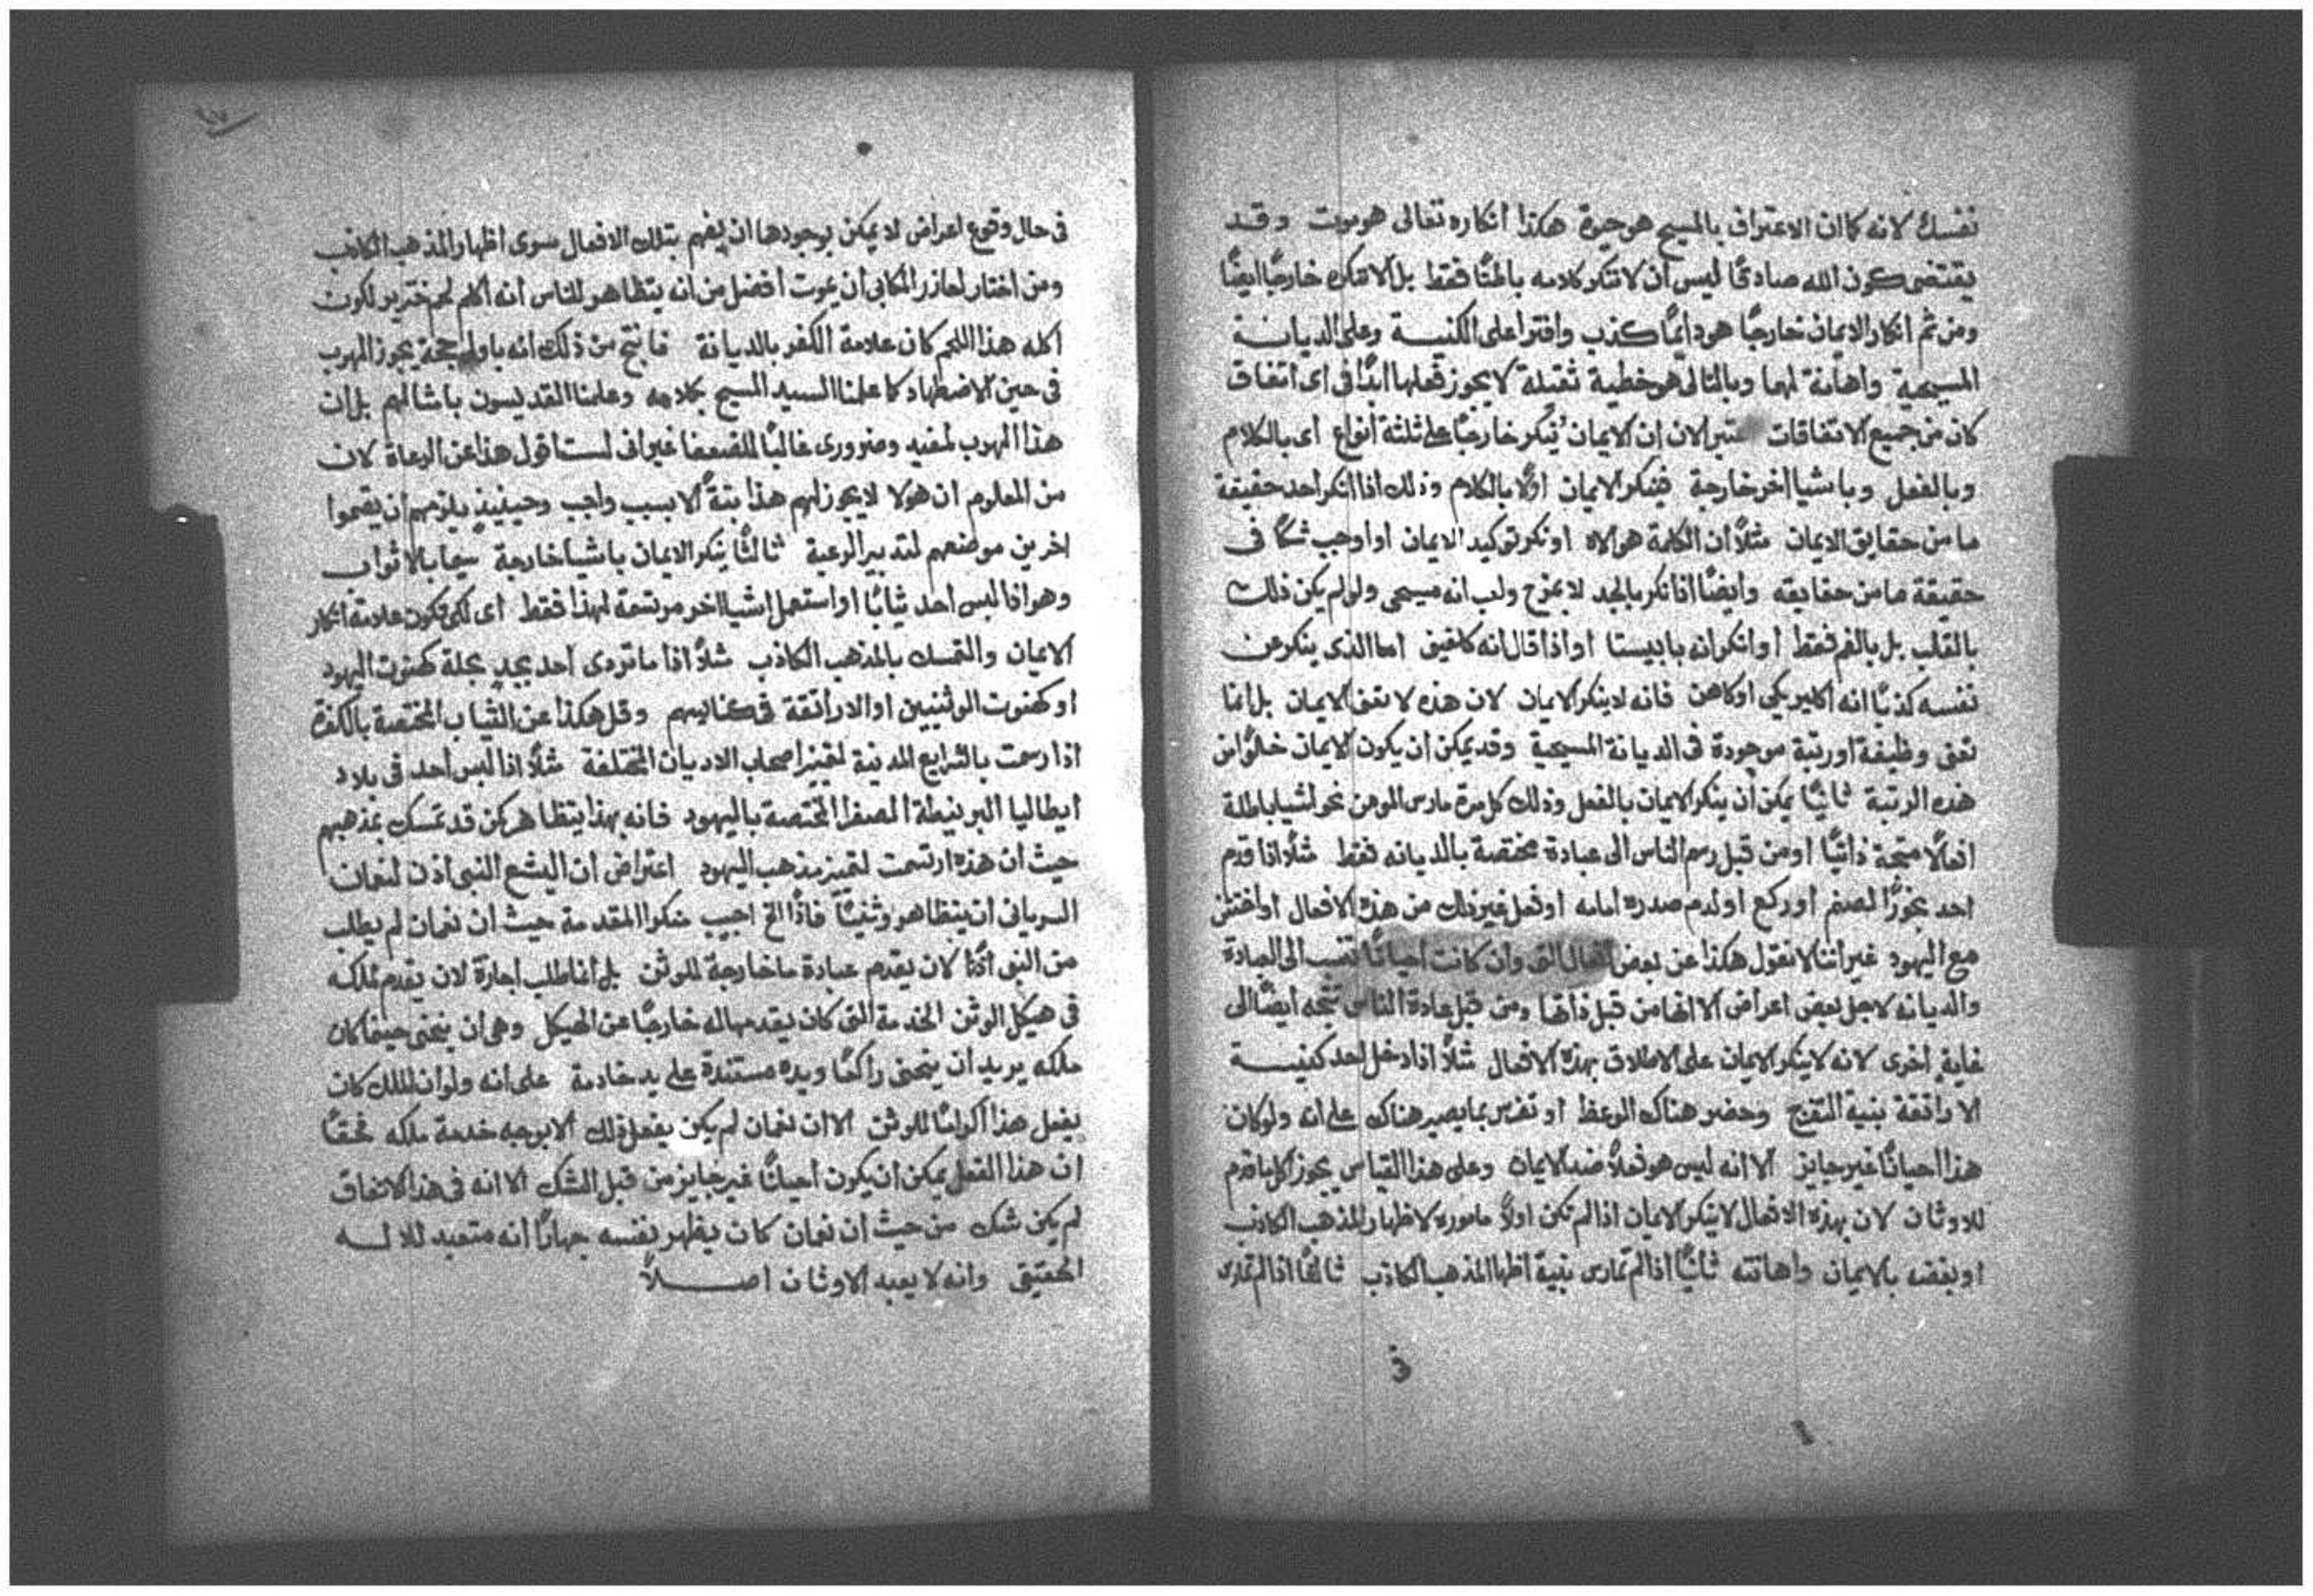 نفسك لانه كما ان الاعتراف بالمسيح هو حيوة هكذا انكاره تعالى هو موت وقد
يقتضى كون الله صادقًا ليس ان لا ننكر كلامه باطنًا فقط بل الا ننكره خارجًا ايضًا
ومن ثم انكار الايمان خارجًا هو دائمًا كذب وافترا على الكنيسة وعلى الديانة
المسيحية واهانة لهما وبالتالى هو خطية ثقيلة لا يجوز فعلها ابدًا فى اى اتفاق
كان من جميع الاتفاقات الان ان الايمان يُنكر خارجًا على ثلثة أنواع اى بالكلام
وبالفعل وباشيا اخر خارجة فينكر الايمان اولًا بالكلام وذلك اذا انكر احد حقيقة
ما من حقايق الايمان مثلًا ان الكلمة هو الاه او نكر توكيد الايمان او اوجب شكًا فى
حقيقة ما من حقايقه وايضًا اذا نكر بالجد لا بمزح ولعب انه مسيحى ولو لم يكن ذلك
بالقلب بل بالفم فقط او انكر انه بابيستا او اذا قال انه اما الذى ينكر عن
نفسه كذبًا انه اكليريكى او كاهن فانه لا ينكر الايمان لان هذه لا تعنى الايمان بل انما
تعنى وظيفة او رتبة موجودة فى الديانة المسيحية وقد يمكن ان يكون الايمان خلوًا من
هذه الرتبة ثانيًا يمكن أن ينكر الايمان بالفعل وذلك كل مرة مارس المومن نحو اشيا باطلة
افعالًا متجهة ذاتيًا او من قبل رسم الناس الى عبادة مختصة بالديانه فقط مثلًا اذا قدم
احد بخورًا لصنم او ركع او لدم صدره امامه او فعل غير ذلك من هذه الافعال او اختتن
مع اليهود غير اننا لا نقول هكذا عن بعض افعال التى وان كانت احيانًا تنسب الى العبادة
والديانه لاجل بعض اعراض الا انها من قبل ذاتها ومن قبل عادة الناس تتجه ايضًا الى
غاية اخرى لانه لا ينكر الايمان على الاطلاق بهذه الافعال مثلًا اذا دخل احد كنيسة
الاراتقة بنية التفرج وحضر هناك الوعظ او تفرس بما يصير هناك على انه ولو كان
هذا احيانًا غير جايز الا انه ليس هو فعلًا ضد الايمان وعلى هذا القياس يجوز اكل ما قدم
للاوثان لان بهذه الافعال لا ينكر الايمان اذا لم تكن اولًا مامورة لاظهار المذهب الكاذب
او بغضه بالايمان واهانته ثانيًا اذا لم تمارس بنية اظهار المذهب الكاذب ثالثًا اذا لم تمارس
فى
فى حال وقوع اعراض لا يمكن بوجودها ان يفهم بتلك الافعال سوى اظهار المذهب الكاذب
ومن اختار لعازر المكابى أن يموت أفضل من انه يتظاهر للناس أنه اكل لحم خنزير لكون
اكله هذا اللحم كان علامة الكفر بالديانة فانتج من ذلك انه باولى حجة يجوز الهرب
فى حين الاضطهاد كما علمنا السيد المسيح بكلامه وعلمنا القديسون بامثالهم بل ان
هذا الهرب لمفيد وضرورى غالبًا للضعفا غير انى لست اقول هذا عن الرعاة لان
من المعلوم ان هولا لا يجوز لهم هذا بتةً الا بسبب واجب وحينيذٍ يلزمهم ان يقيموا
اخرين موضعهم لتدبير الرعية ثالثًا ينكر الايمان باشيا خارجة سيما بالاثواب
وهو اذا لبس أحد ثيابًا او استعمل اشيا اخر مرتسمة لهذا فقط اى لكى تكون علامة انكار
الايمان والتمسك بالمذهب الكاذب مثلًا اذا ما تردى أحد بجدٍ بحلة كهنوت اليهود
او كهنوت الوثنيين او الاراتقة فى كنايسهم وقل هكذا عن الثياب المختصة بالكفرة
اذا رسمت بالشرايع المدنية لتمييز اصحاب الاديان المختلفة مثلًا اذا لبس أحد فى بلاد
ايطاليا البرنيطة الصفرا المختصة باليهود فانه بهذا يتظاهر كمن قد تمسك بمذهبهم
حيث ان هذه ارتسمت لتمييز مذهب اليهود اعتراض ان اليشع النبى اذن لنعمان
السريانى ان يتظاهر وثنيًا فاذًا الخ اجيب منكرا المقدمة حيث ان نعمان لم يطلب
من النبى اذنًا لان يقدم عبادة ما خارجة للوثن بل انما طلب اجازة لان يقدم لملكه
فى هيكل الوثن الخدمة التى كان يقدمها له خارجًا عن الهيكل وهى أن ينحنى حينما كان
ملكه يريد ان ينحنى راكعًا ويده مستندة على يد خادمة على انه ولو ان الملك كان
يفعل هذا اكرامًا للوثن الا ان نعمان لم يكن يفعل ذلك الا بوجه خدمة ملكه محقًا
ان هذا الفعل يمكن ان يكون أحيانًا غير جايز من قبل الشك الا انه فى هذا الاتفاق
لم يكن شك من حيث أن نعمان كان يظهر نفسه جهارًا أنه متعبد للاله
الحقيقى وانه لا يعبد الاوثان اصلًا